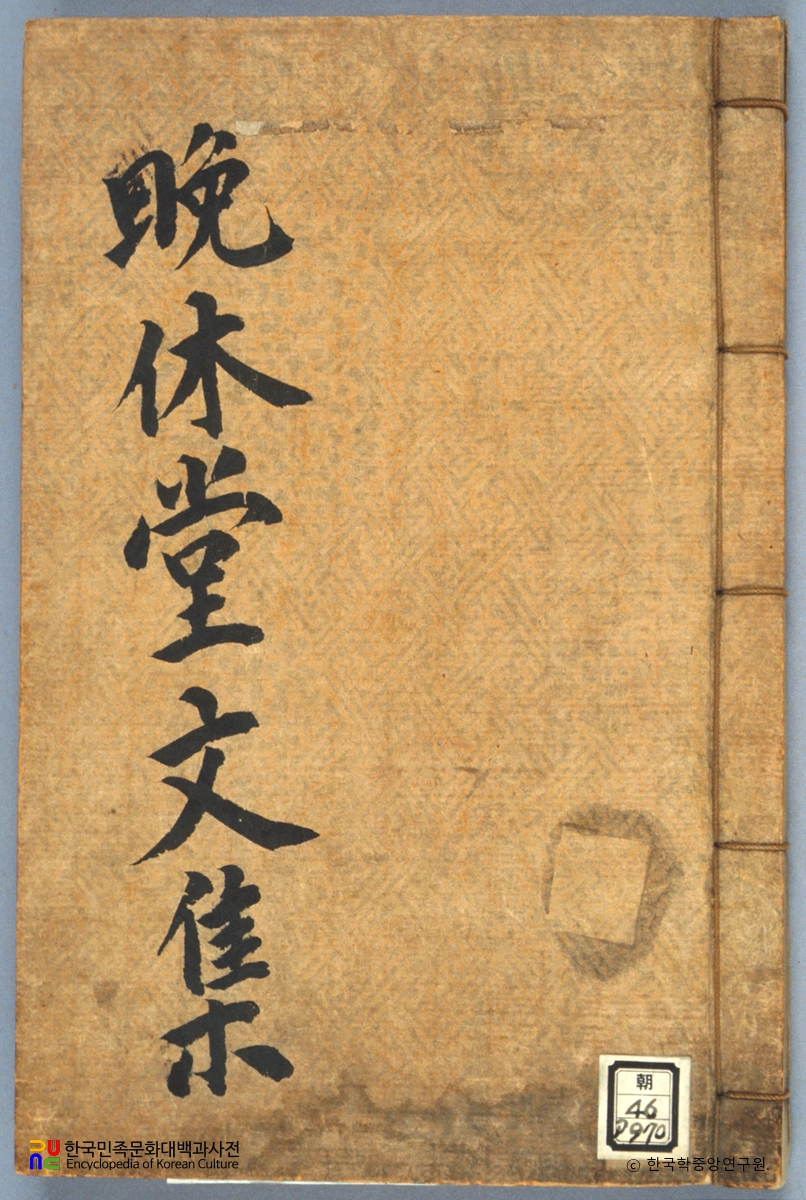 晩休堂文集
朝
46
P970
한국민족문화대백과사전
Encyclopedia of Korean Culture
© 한국학중앙연구원.